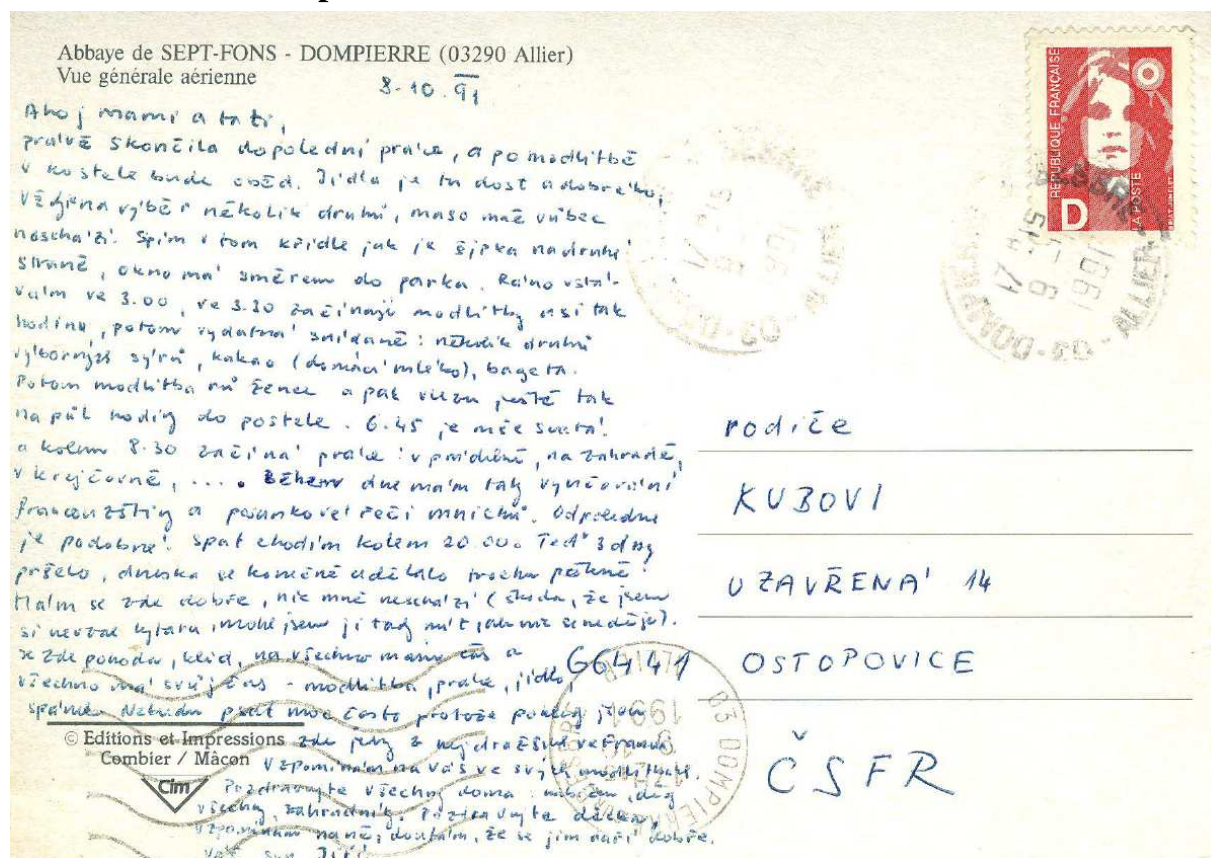 Abbaye de SEPT-FONS - DOMPIERRE (03290 Allier)
Vue générale aérienne
8.10.91
Ahoj mami a tati,
právě skončila dopolední práce, a po modlitbě
v kostele bude oběd. Jídla je tu dost a dobrého,
výběr několik druhů, maso mně vůbec
neschází. Spím v tom křídle jak je šipka na druhé
straně, okno má směrem do parku. Ráno vstá-
vám ve 3.00, ve 3.30 začínají modlitby asi tak
hodinu, potom vydatná snídaně: několik druhů
výborných sýrů, kakao (domácí mléko), bageta.
Potom modlitba růžence a pak vlezu ještě tak
na půl hodiny do postele. 6.45 je mše svatá
a kolem 8.30 začíná práce: v prádelně, na zahradě,
v krejčovně, .... Během dne mám tady vyučování
francouzštiny a posunkové řeči mnichů. Odpoledne
je podobné. Spát chodím kolem 20.00. Teď 3 dny
pršelo, dneska se konečně udělalo trochu pěkně.
Mám se zde dobře, nic mně neschází (škoda, že jsem
si nevzal kytaru, mohl jsem ji tady mít).
Je zde pohoda, klid, na všechno máme čas a
všechno má svůj čas - modlitba, práce, jídlo,
spánek. Nebudu psát moc často protože jsou
zde z nejdražších ve Francii
Vzpomínám na Vás ve svých modlitbách.
Pozdravujte všechny doma:
všechny, zahradníky. Pozdravujte
vzpomínám na ně, doufám, že se jim daří dobře.
Váš syn Jiří
© Editions et Impressions
Combier / Mâcon
Cim
RÉPUBLIQUE FRANÇAISE
D
LA POSTE
03 - DOMPIERRE
ALLIER
03 DOMPIERRE
ALLIER
1991
rodiče
KUBOVI
UZAVŘENÁ 14
664 41 OSTOPOVICE
ČSFR